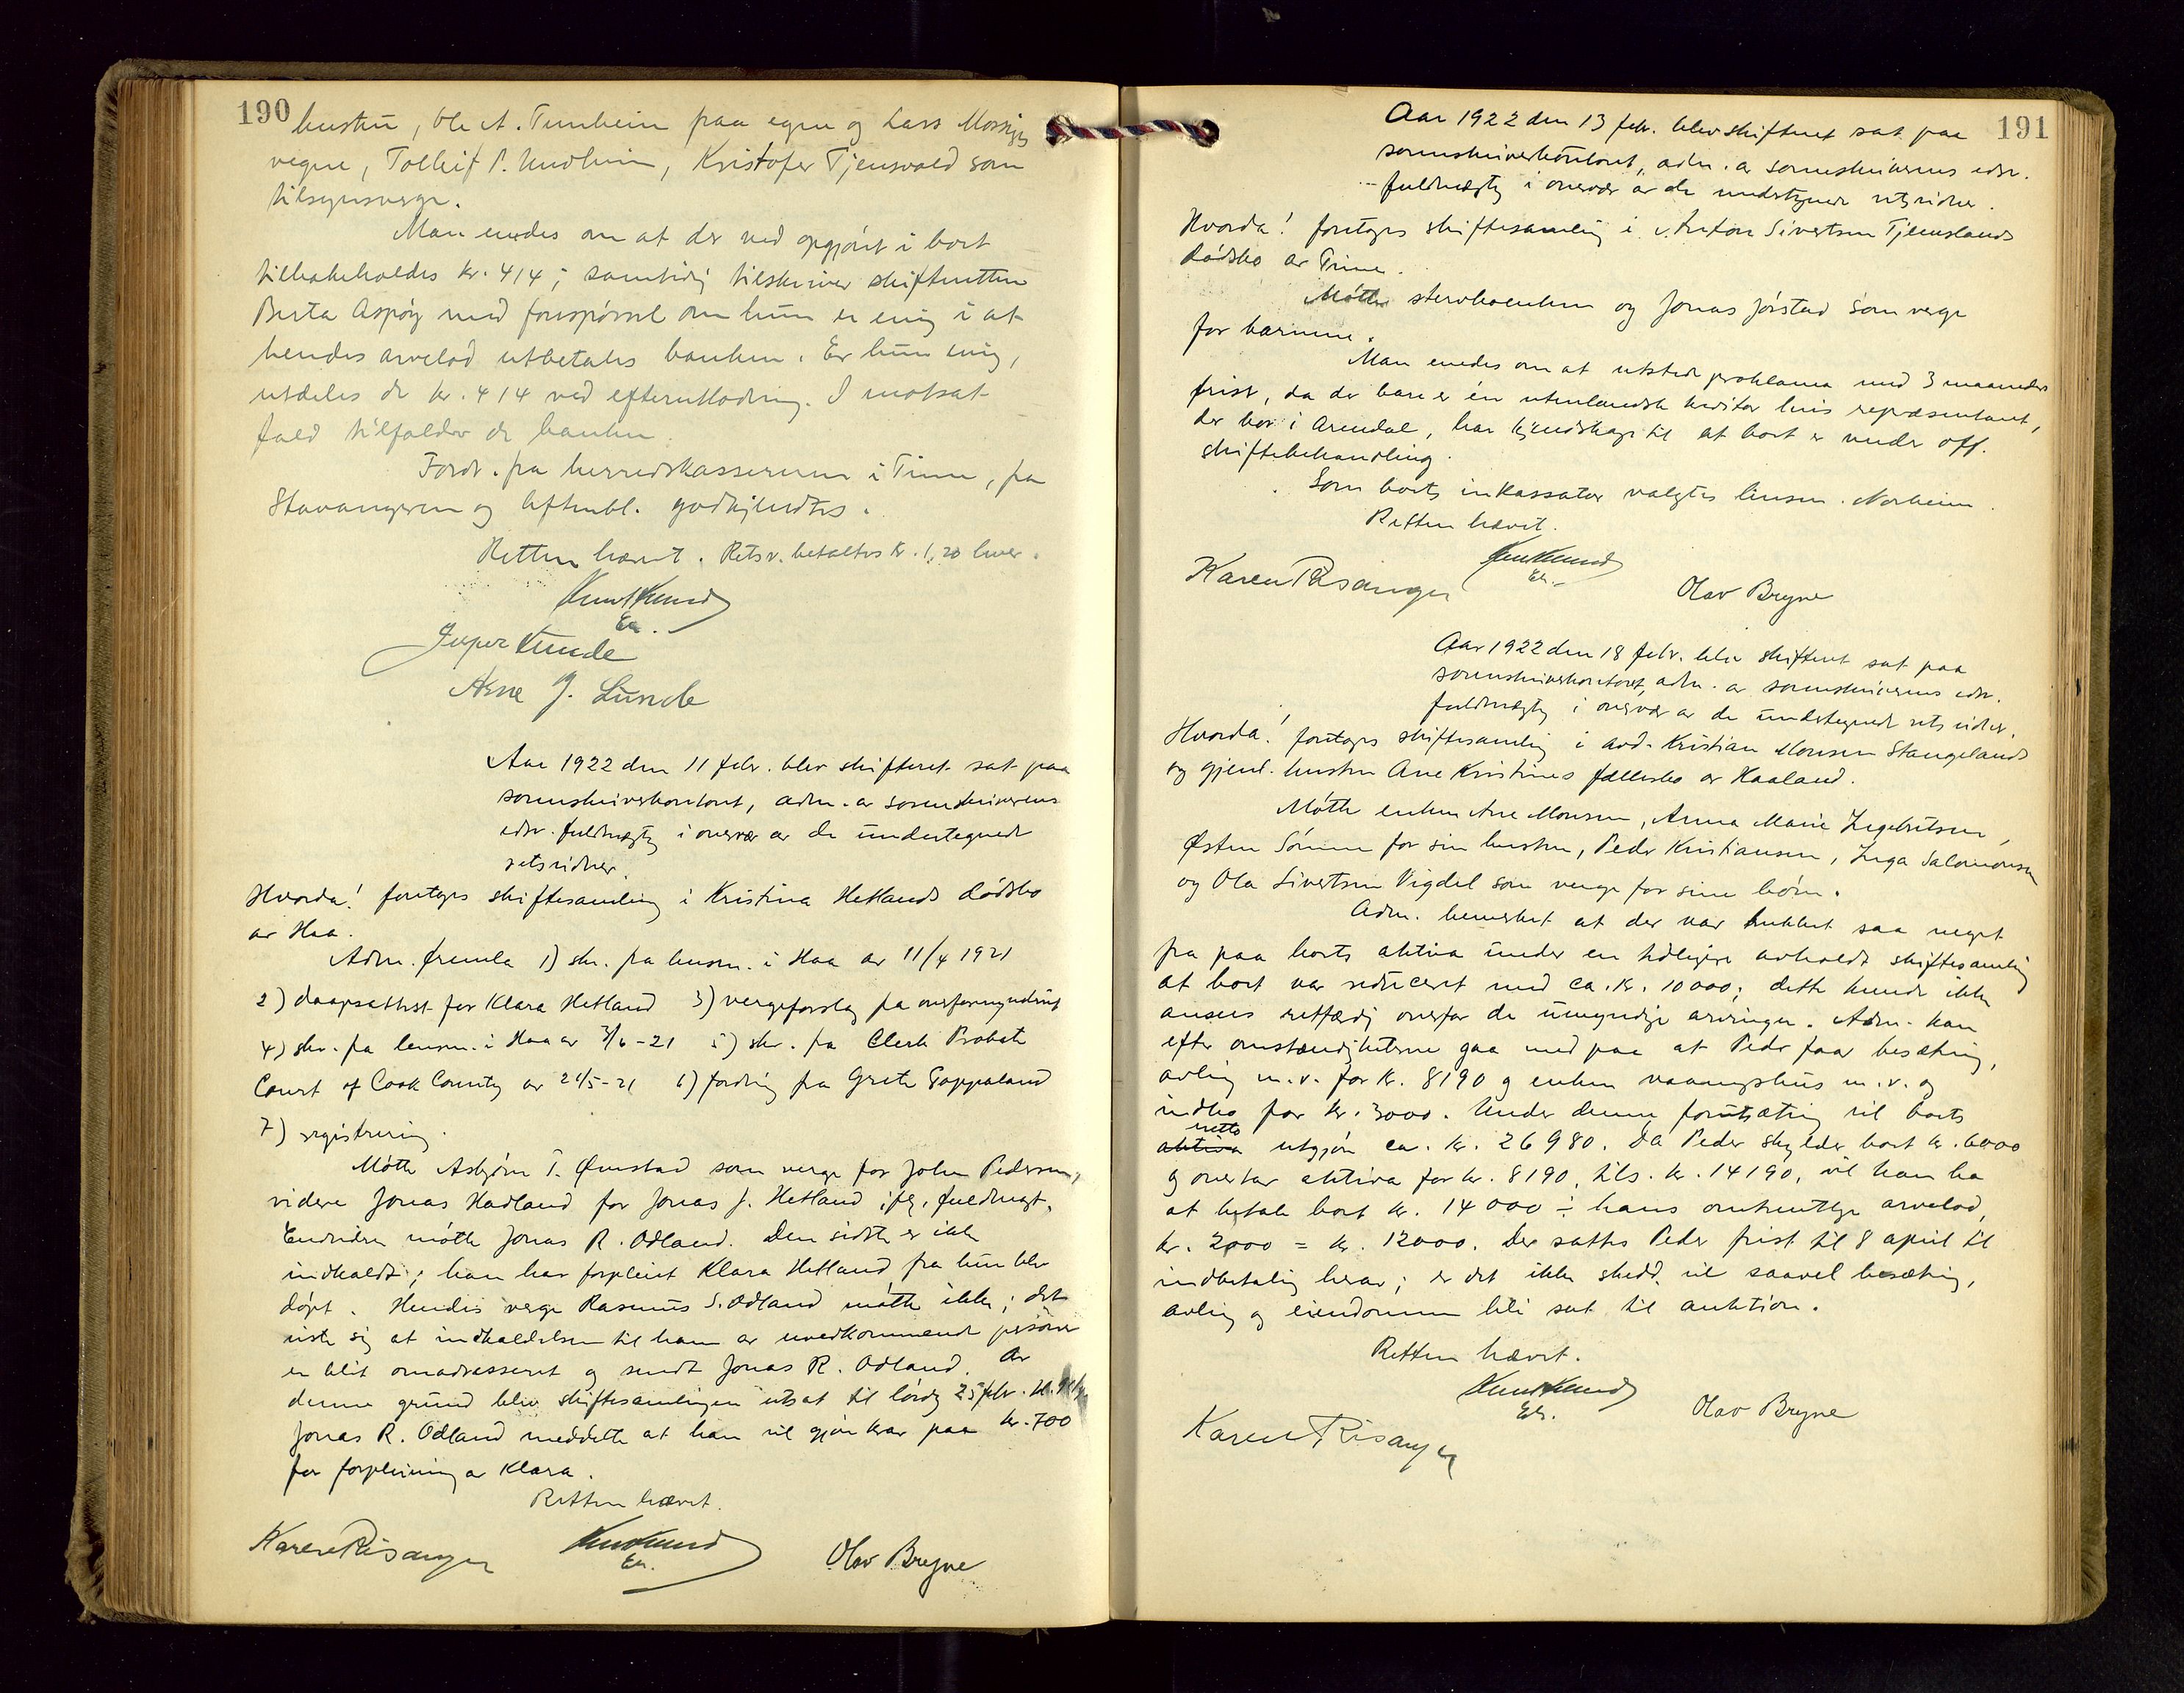 190
hustru, Ole A. Tunheim paa egne og Lars Mossiges
vegne, Tolleif P. Undheim, Kristofer Tjensvold som
tilsynsverge.
Man enedes om at der ved opgjöret i boet
tilbakeholdes kr. 414; samtidig tilskriver skifteretten
Berta Aspöy med forespörsel om hun er enig i at
hendes arvelod utbetales banken. Er hun enig,
utdeles de kr. 414 ved efterutlodning. I motsat
fald tilfalder de banken.
Fordr. fra herredskassereren i Time, fra
Stavangeren og Aftenbl. godkjendtes.
Retten hævet. Retsv. betaltes kr. 1,20 hver.
Knut Lunde
Ea.
Jesper Lunde
Arne J. Lunde
Aar 1922 den 11 febr. blev skifteret sat paa
sorenskriverkontoret, adm. av sorenskriverens
edsv. fuldmægtig i overvær av de undertegnede
retsvidner.
Hvorda! foretoges skiftesamling i Kristina Hetlands dödsbo
av Haa.
Adm. fremla 1) skr. fra lensm. i Haa av 11/4 1921
2) daapsattest for Klara Hetland 3) vergeforslag fra overformynderiet
4) skr. fra lensm. i Haa av 3/6-21 5) skr. fra Clerk Probate
Court of Cook County av 21/5-21 6) fordring fra Grete Goppaland
7) registrering.
Mötte Asbjörn T. Ømstad som verge for John Pedersen,
videre Jonas Hadland for Jonas J. Hetland ifg. fuldmagt.
Endvidere mötte Jonas R. Odland. Den sidste er ikke
indkaldt; han har forpleiet Klara Hetland fra hun blev
döpt. Hendes verge Rasmus S. Odland mötte ikke; det
viste sig at indkaldelsen til ham av uvedkommende person
er blit omadresseret og sendt Jonas R. Odland. Av
denne grund blev skiftesamlingen utsat til lördag 25 febr. kl.
Jonas R. Odland meddelte at han vil gjöre krav paa kr. 700
for forpleining av Klara.
Retten hævet.
Karen Risanger
Knut Lunde
Ea.
Olav Bryne
191
Aar 1922 den 13 febr. blev skifteret sat paa
sorenskriverkontoret, adm. av sorenskriverens edsv.
fuldmægtig i overvær av de undertegnede retsvidner.
Hvorda! foretoges skiftesamling i Anton Sivertsen Tjemslands
dödsbo av Time.
Mötte stervboenken og Jonas Jörstad som verge
for barnene.
Man enedes om at utstede proklama med 3 maaneders
frist, da der bare er én utenlandsk kreditor hvis repræsentant,
der bor i Arendal, har kjendskap til at boet er under off.
skiftebehandling.
Som boets inkassator valgtes lensm. Norheim.
Retten hævet.
Karen Risanger
Knut Lunde
Ea.
Olav Bryne
Aar 1922 den 18 febr. blev skifteret sat paa
sorenskriverkontoret, adm. av sorenskriverens edsv.
fuldmægtig i overvær av de undertegnede retsvidner.
Hvorda! foretoges skiftesamling i avd. Kristian Monsen Stangelands
og gjenl. hustru Ane Kristines fællesbo av Haaland.
Mötte enken Ane Monsen, Anna Marie Ingebritsen,
Østen Sömme for sin hustru, Peder Kristiansen, Inga Salomonsen
og Ola Sivertsen Vigdel som verge for sine börn.
Adm. bemerket at der var trukket saa meget
fra paa boets aktiva under en tidligere avholdt skiftesamling
at boet var reduceret med ca. kr. 10000; dette kunde ikke
ansees retfærdig overfor de umyndige arvinger. Adm. kan
efter omstændighetene gaa med paa at Peder faar besætning,
avling m.v. for kr. 8190 og enken vaaningshus m.v. og
indbo for kr. 3000. Under denne forutsætning vil boets
netto
aktiva utgjöre ca. kr. 26980. Da Peder skylder boet kr. 6000
og overtar aktiva for kr. 8190, tils. kr. 14190, vil han ha
at betale boet kr. 14000 ÷ hans omtrentlige arvelod,
kr. 2000 = kr. 12000. Der sattes Peder frist til 8 april til
indbetaling herav; er det ikke skedd, vil saavel besætning,
avling og eiendommen bli sat til auktion.
Retten hævet.
Knut Lunde
Ea.
Karen Risanger
Olav Bryne